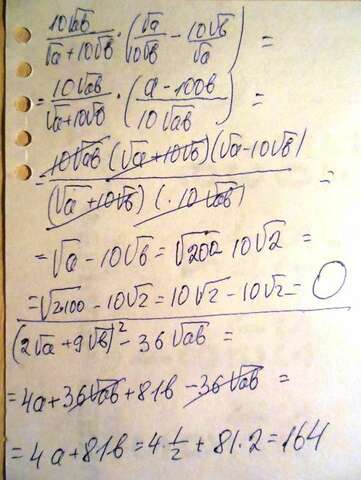 10√ab / (√a + 10√b) · (√a / 10√b − 10√b / √a) =
= 10√ab / (√a + 10√b) · ((a − 100b) / 10√ab) =
= 10√ab (√a + 10√b)(√a − 10√b) / (√a + 10√b) ( · 10√ab) =
= √a − 10√b = √200 10√2 =
= √2·100 − 10√2 = 10√2 − 10√2 = 0
(2√a + 9√b)² − 36√ab =
= 4a + 36√ab + 81b − 36√ab =
= 4a + 81b = 4·1/2 + 81·2 = 164